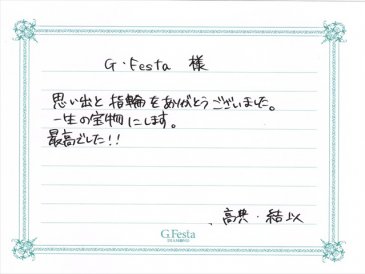 G・Festa 様
思い出と指輪をありがとうございました。
一生の宝物にします。
最高でした!!
高典・結以
G.Festa
DIAMOND